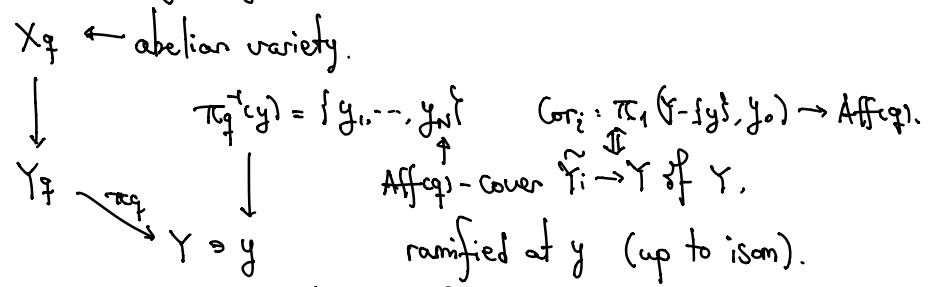 X_q ← abelian variety.
π_q^{-1}(y) = {y_1, ..., y_N} Cor_i : π_1(Y-{y}, y_0) → Aff(q).
Y_q Aff(q)-cover Ỹ_i → Y of Y,
π_q
Y ∋ y ramified at y (up to isom).